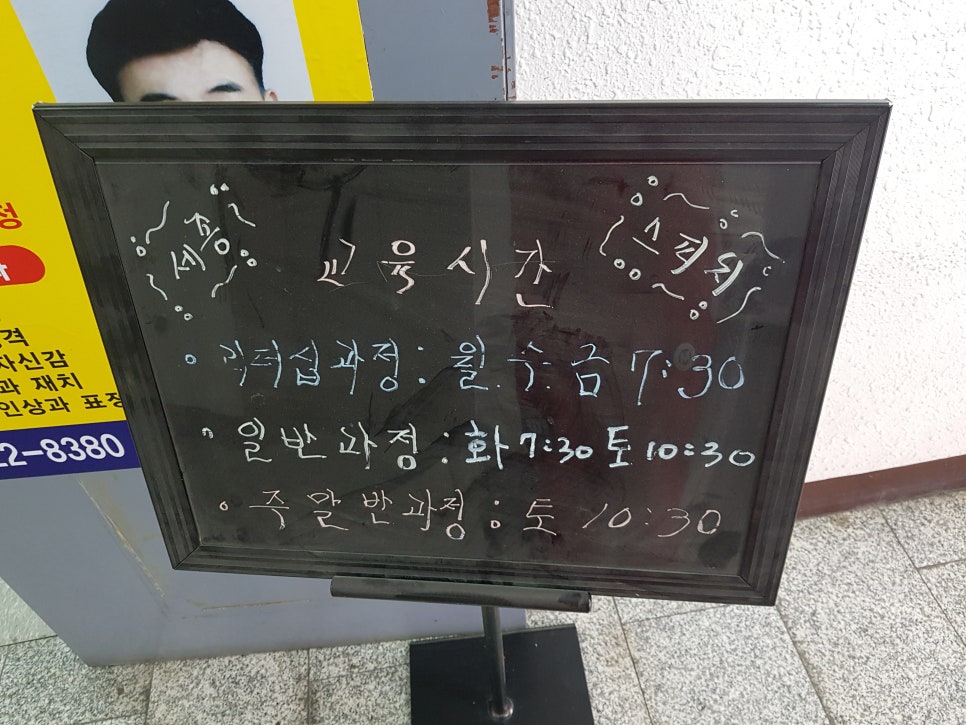 세종 교육시간 스피치
• 리더쉽과정 : 월.수.금 7:30
• 일반과정 : 화 7:30 토 10:30
• 주말반과정 : 토 10:30
정
격
자신감
과 재치
인상과 표정
22-8380